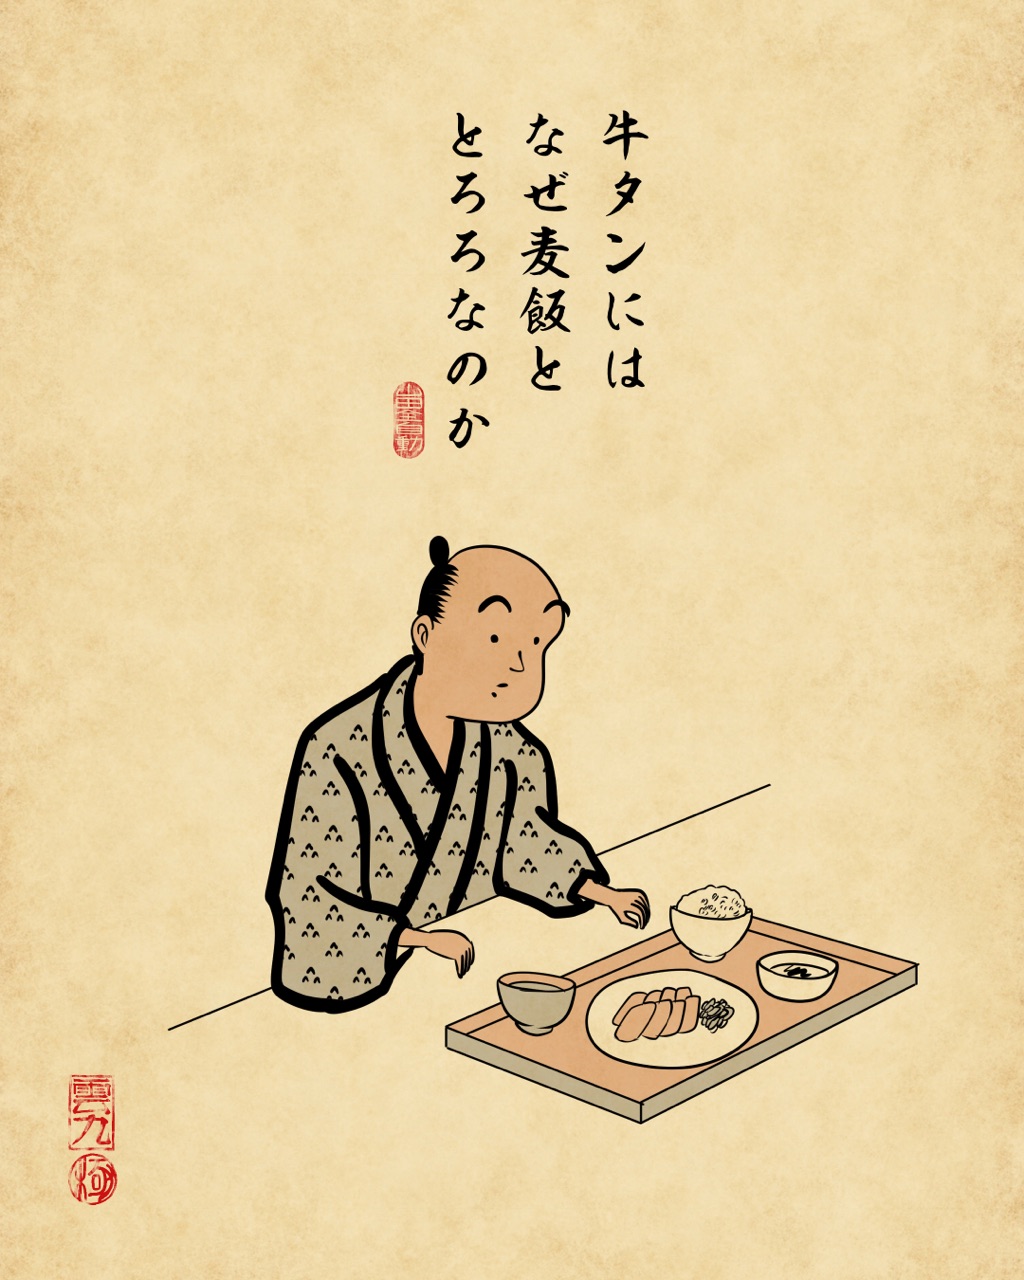 牛タンには
なぜ麦飯と
とろろなのか